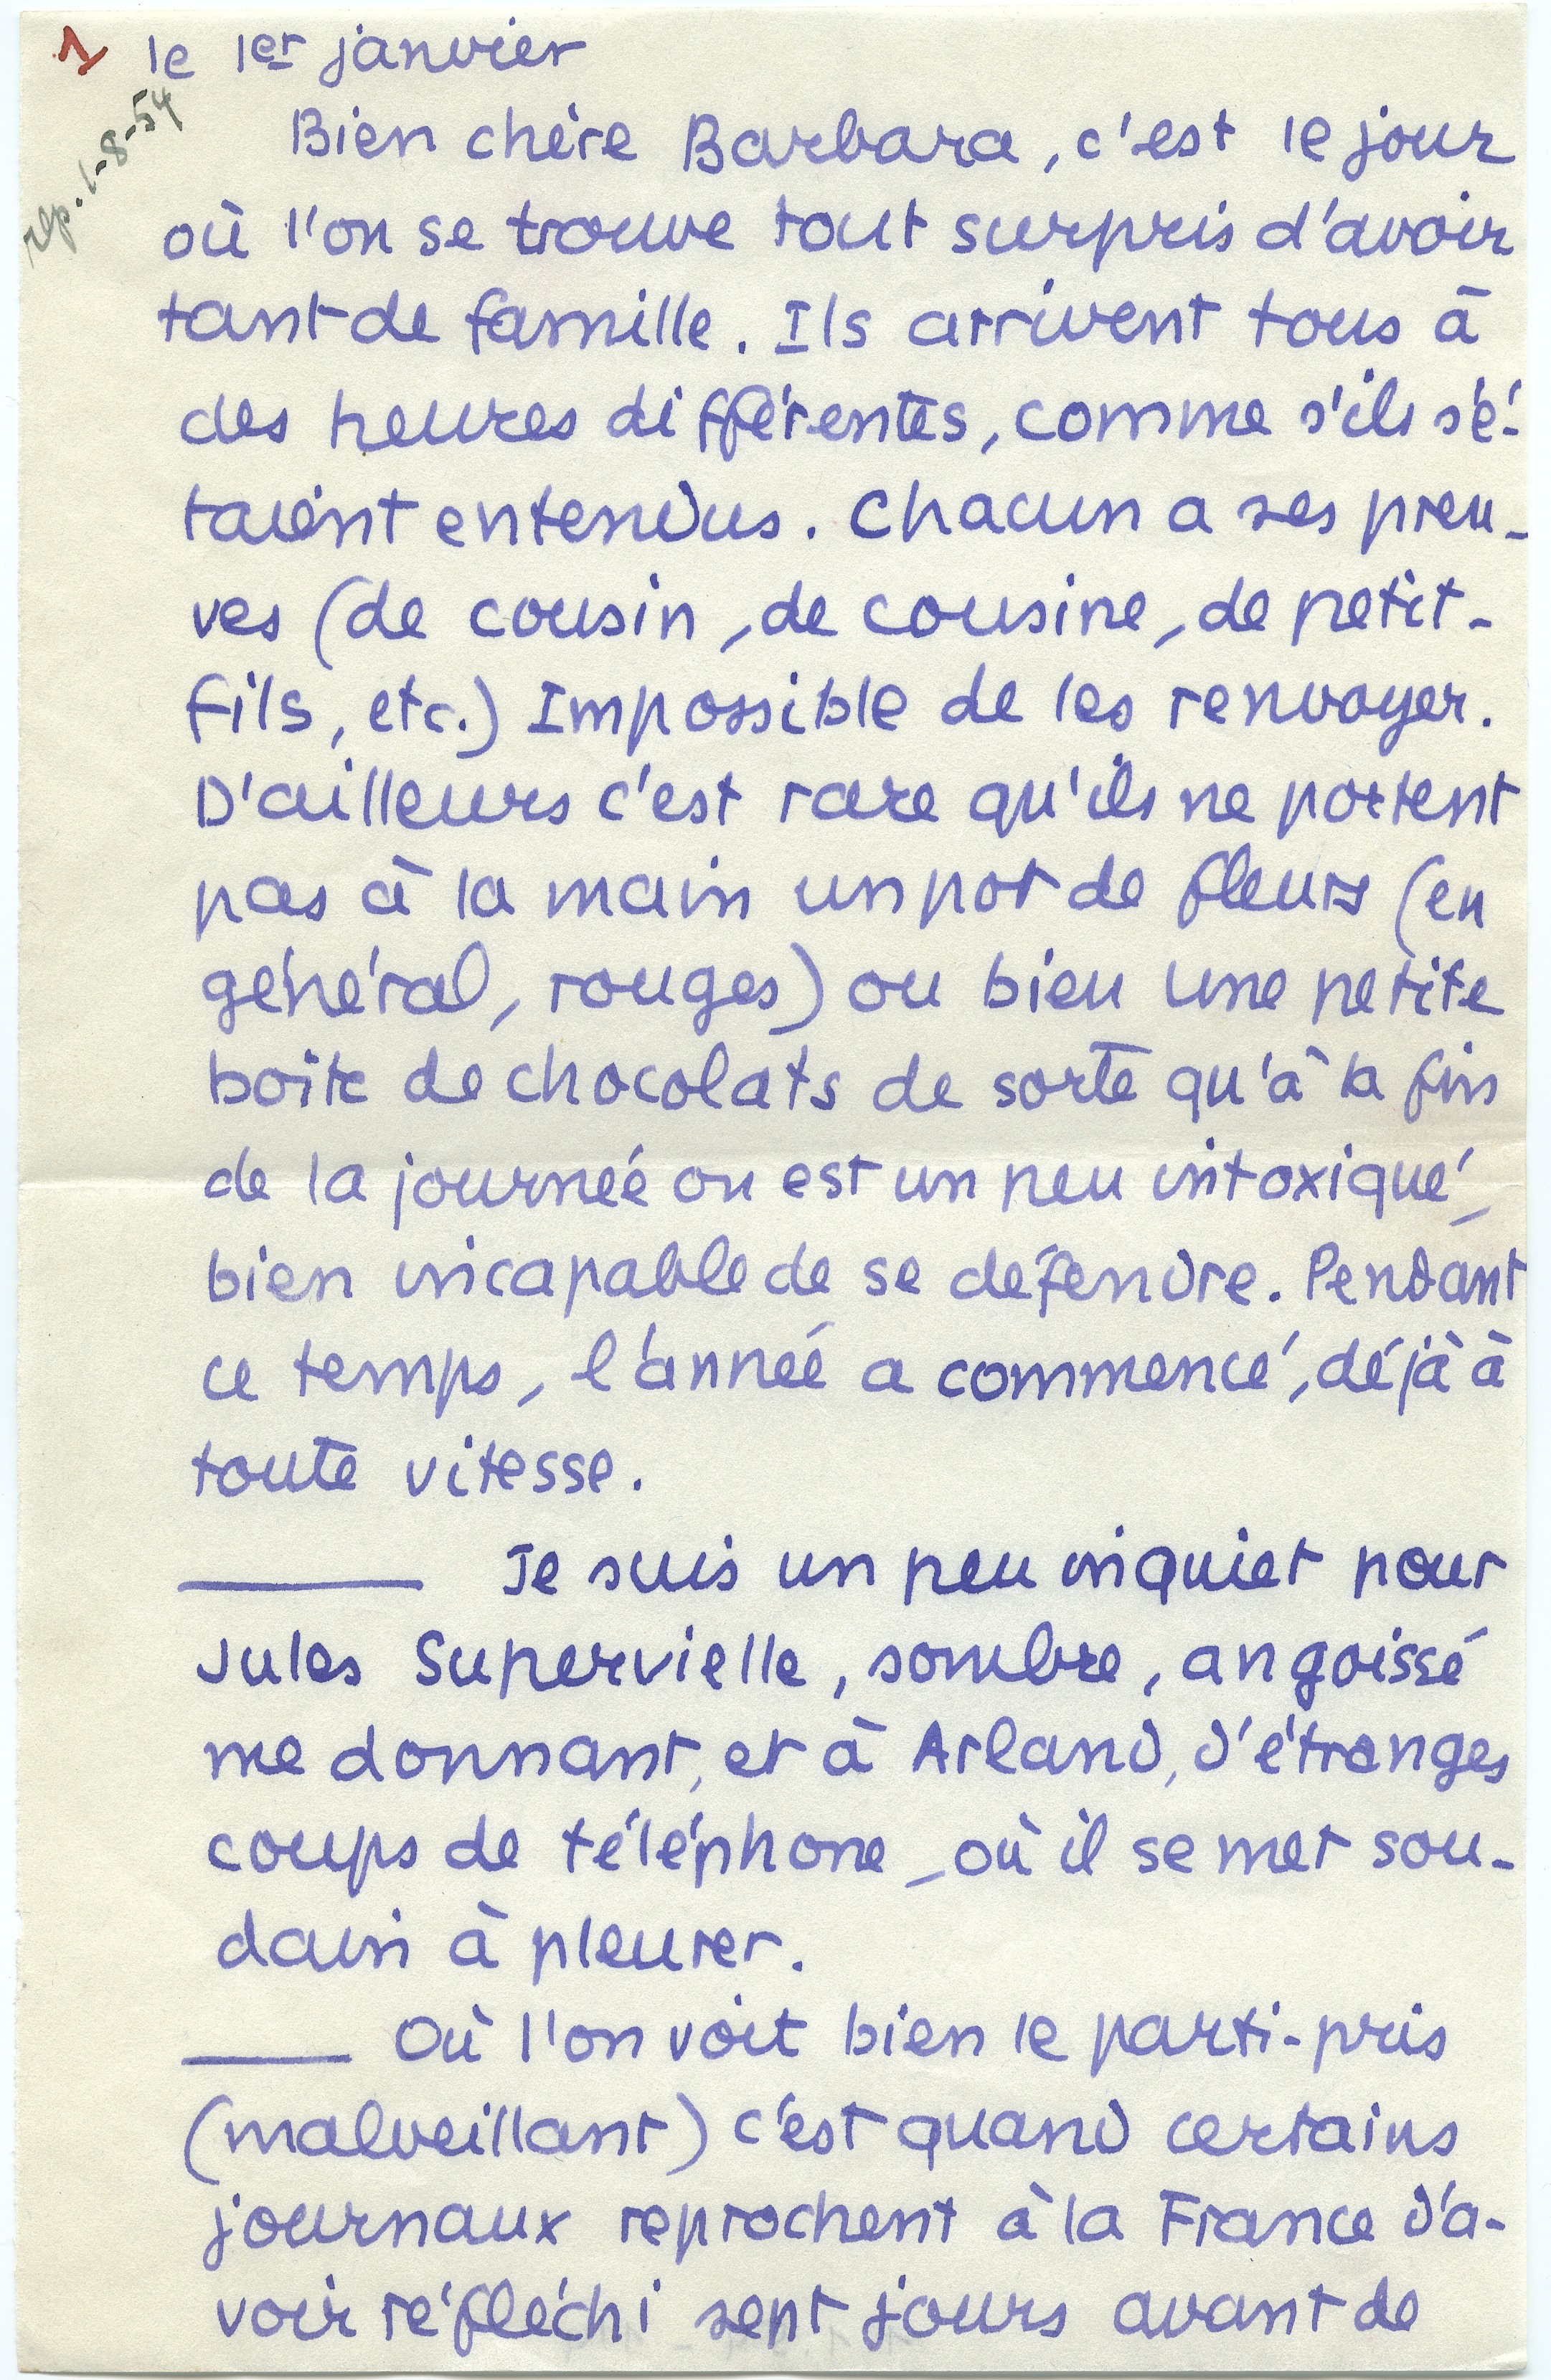 1 le 1er janvier
rép. 1-8-54
Bien chère Barbara, c'est le jour
où l'on se trouve tout surpris d'avoir
tant de famille. Ils arrivent tous à
des heures différentes, comme s'ils s'é-
taient entendus. Chacun a ses preu-
ves (de cousin, de cousine, de petit-
fils, etc.) Impossible de les renvoyer.
D'ailleurs c'est rare qu'ils ne portent
pas à la main un pot de fleurs (en
général, rouges) ou bien une petite
boîte de chocolats de sorte qu'à la fin
de la journée on est un peu intoxiqué,
bien incapable de se défendre. Pendant
ce temps, l'année a commencé, déjà à
toute vitesse.
——— Je suis un peu inquiet pour
Jules Supervielle, sombre, angoissé
me donnant, et à Arland, d'étranges
coups de téléphone, où il se met sou-
dain à pleurer.
——— Où l'on voit bien le parti-pris
(malveillant) c'est quand certains
journaux reprochent à la France d'a-
voir réfléchi sept jours avant de